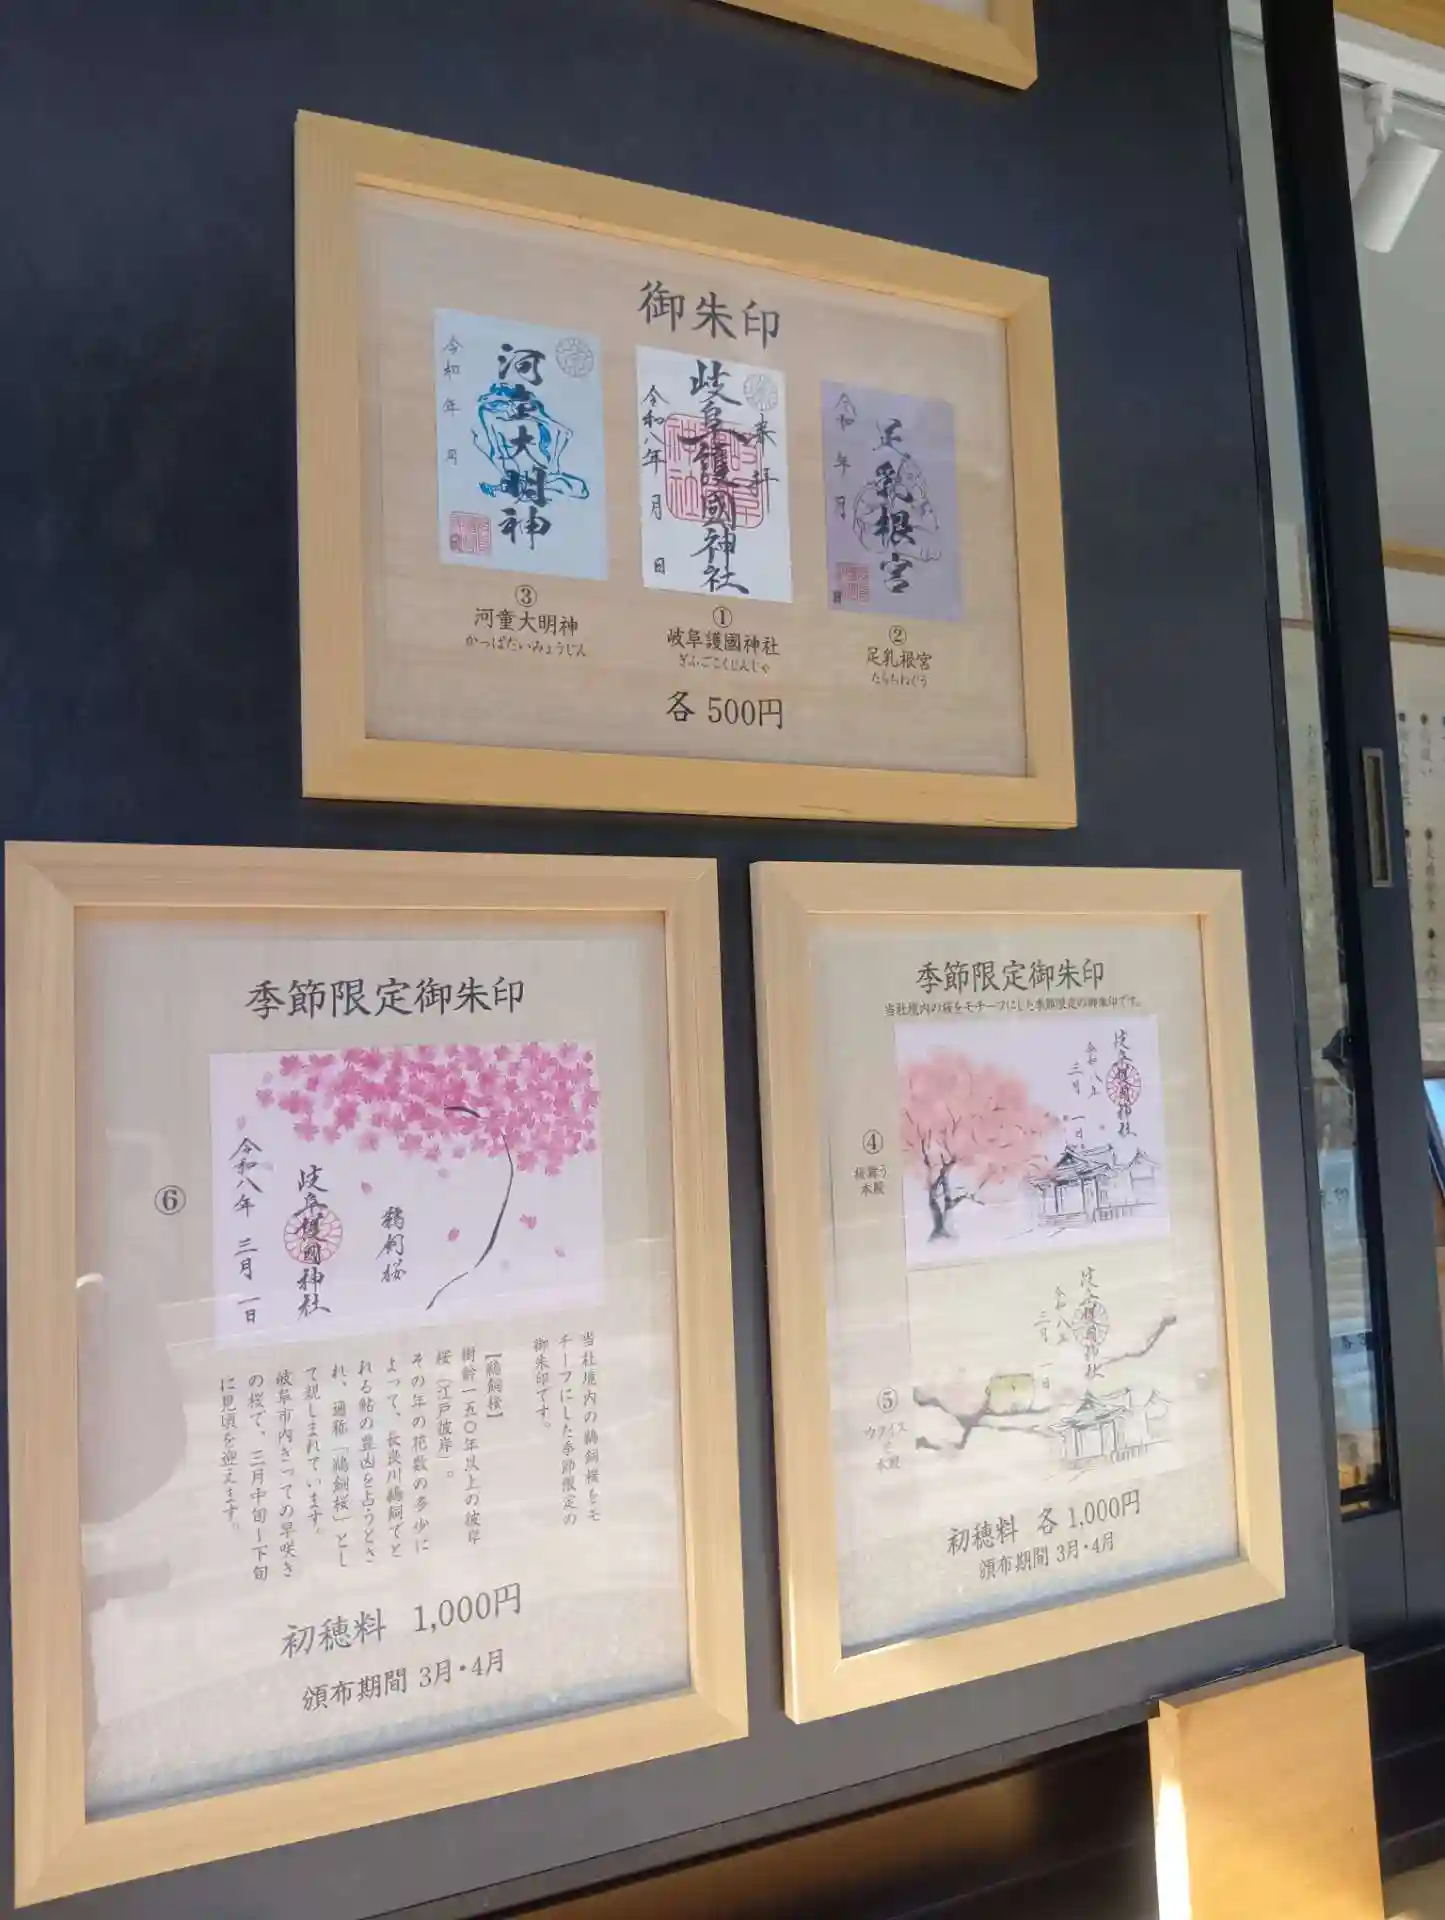 御朱印
河童大明神
令和 年 月 日
岐阜護國神社
奉拝
令和八年 月 日
足乳根宮
令和 年 月 日
③
河童大明神
かっぱだいみょうじん
①
岐阜護國神社
ぎふごこくじんじゃ
②
足乳根宮
たらちねぐう
各 500円
季節限定御朱印
⑥
鵜飼桜
岐阜護國神社
令和八年 三月 一日
当社境内の鵜飼桜をモ
チーフにした季節限定の
御朱印です。
【鵜飼桜】
樹齢一五〇年以上の彼岸
桜(江戸彼岸)。
その年の花数の多少に
よって、長良川鵜飼でと
れる鮎の豊凶を占うとさ
れ、通称「鵜飼桜」とし
て親しまれています。
岐阜市内きっての早咲き
の桜で、三月中旬~下旬
に見頃を迎えます。
初穂料 1,000円
頒布期間 3月・4月
季節限定御朱印
当社境内の桜をモチーフにした季節限定の御朱印です。
④
桜舞う
本殿
岐阜護國神社
令和八年
三月 一日
⑤
ウグイス
と
本殿
岐阜護國神社
令和八年
三月 一日
初穂料 各 1,000円
頒布期間 3月・4月